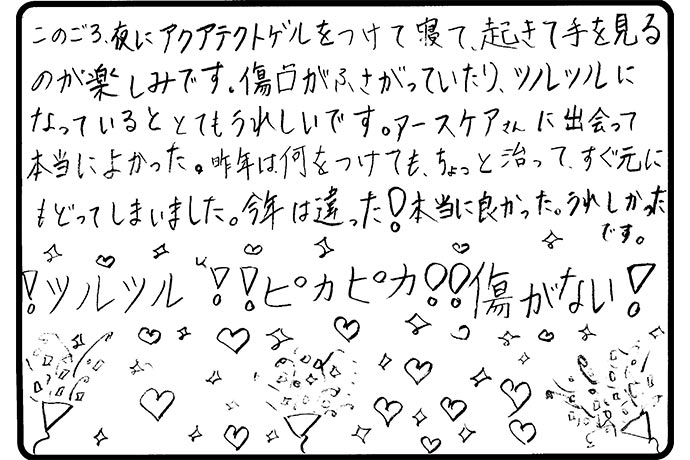 このごろ、夜にアクアテクトゲルをつけて寝て、起きて手を見る
のが楽しみです。傷口がふさがっていたり、ツルツルに
なっているととてもうれしいです。アースケアさんに出会って
本当によかった。昨年は何をつけても、ちょっと治って、すぐ元に
もどってしまいました。今年は違った!本当に良かった。うれしかった
です。
!ツルツル!!ピカピカ!!傷がない!